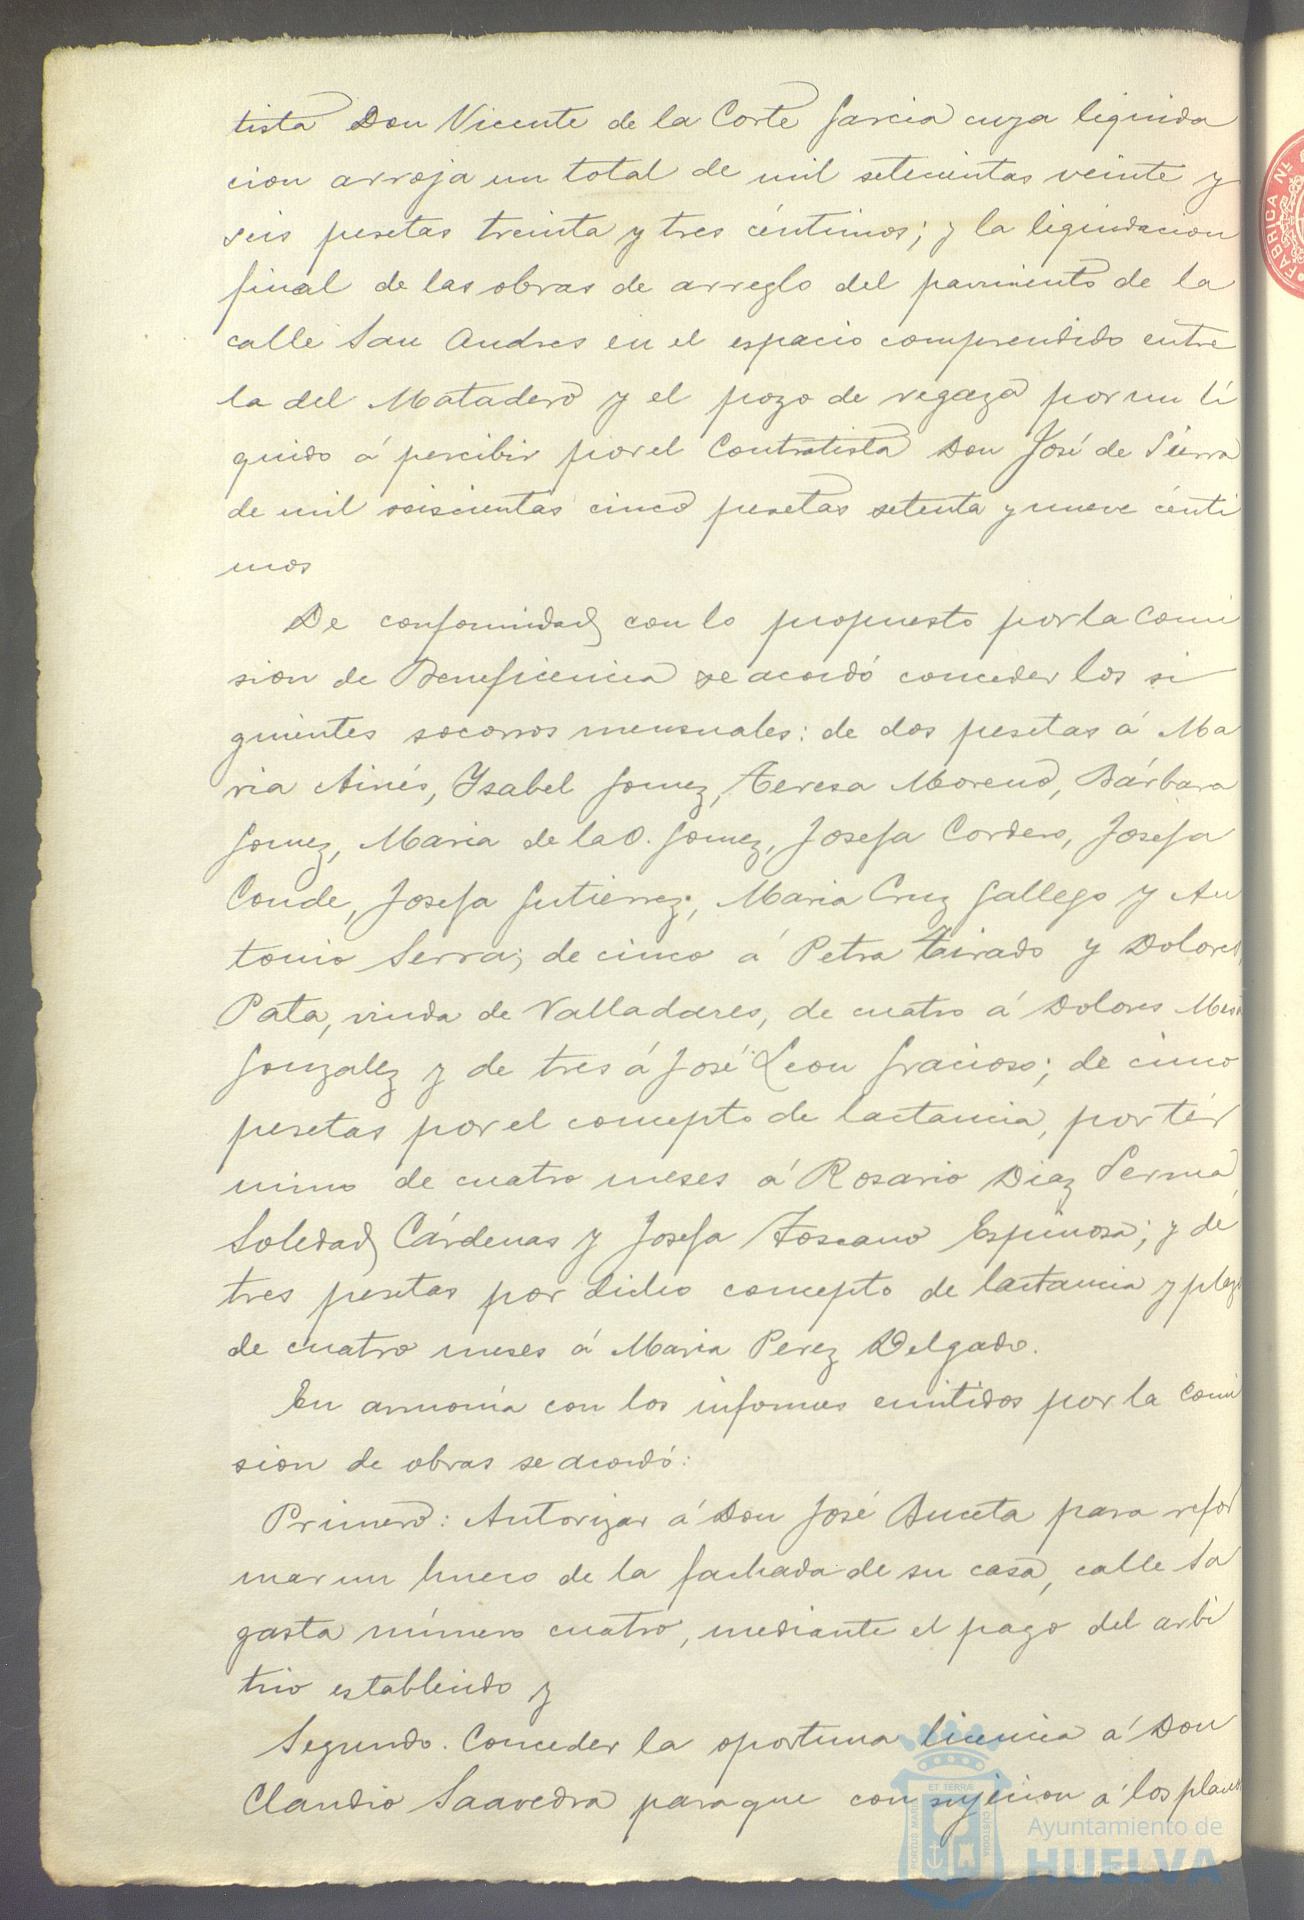 tista Don Vicente de la Corte Garcia cuya liquida
cion arroja un total de mil setecientas veinte y
seis pesetas treinta y tres céntimos; y la liquidacion
final de las obras de arreglo del pavimento de la
calle San Andres en el espacio comprendido entre
la del Matadero y el pozo de regaza por un lí
quido á percibir por el Contratista Don José de Sierra
de mil seiscientas cinco pesetas setenta y nueve cénti
mos
De conformidad con lo propuesto por la Comi
sion de Beneficencia se acordó conceder los si
guientes socorros mensuales: de dos pesetas á Ma
ria Ainés, Ysabel Gomez, Teresa Moreno, Bárbara
Gomez, Maria de la O. Gomez, Josefa Cordero, Josefa
Conde, Josefa Gutierrez, Maria Cruz Gallego y An
tonio Serra; de cinco á Petra Tirado y Dolores
Pata, viuda de Valladares, de cuatro á Dolores Mesa
Gonzalez y de tres á José Leon Gracioso; de cinco
pesetas por el concepto de lactancia, por tér
mino de cuatro meses á Rosario Diaz Serma,
Soledad Cárdenas y Josefa Toscano Espinosa; y de
tres pesetas por dicho concepto de lactancia y plazo
de cuatro meses á Maria Perez Delgado.
En armonía con los informes emitidos por la Comi
sion de obras se acordó:
Primero: Autorizar á Don José Buceta para refor
mar un hueco de la fachada de su casa, calle Sa
gasta número cuatro, mediante el pago del arbi
trio establecido y
Segundo. Conceder la oportuna licencia á Don
Claudio Saavedra para que con sujecion á los planos
FABRICA N
ET TERRÆ
PORTUS MARIS
CUSTODIA
Ayuntamiento de
HUELVA